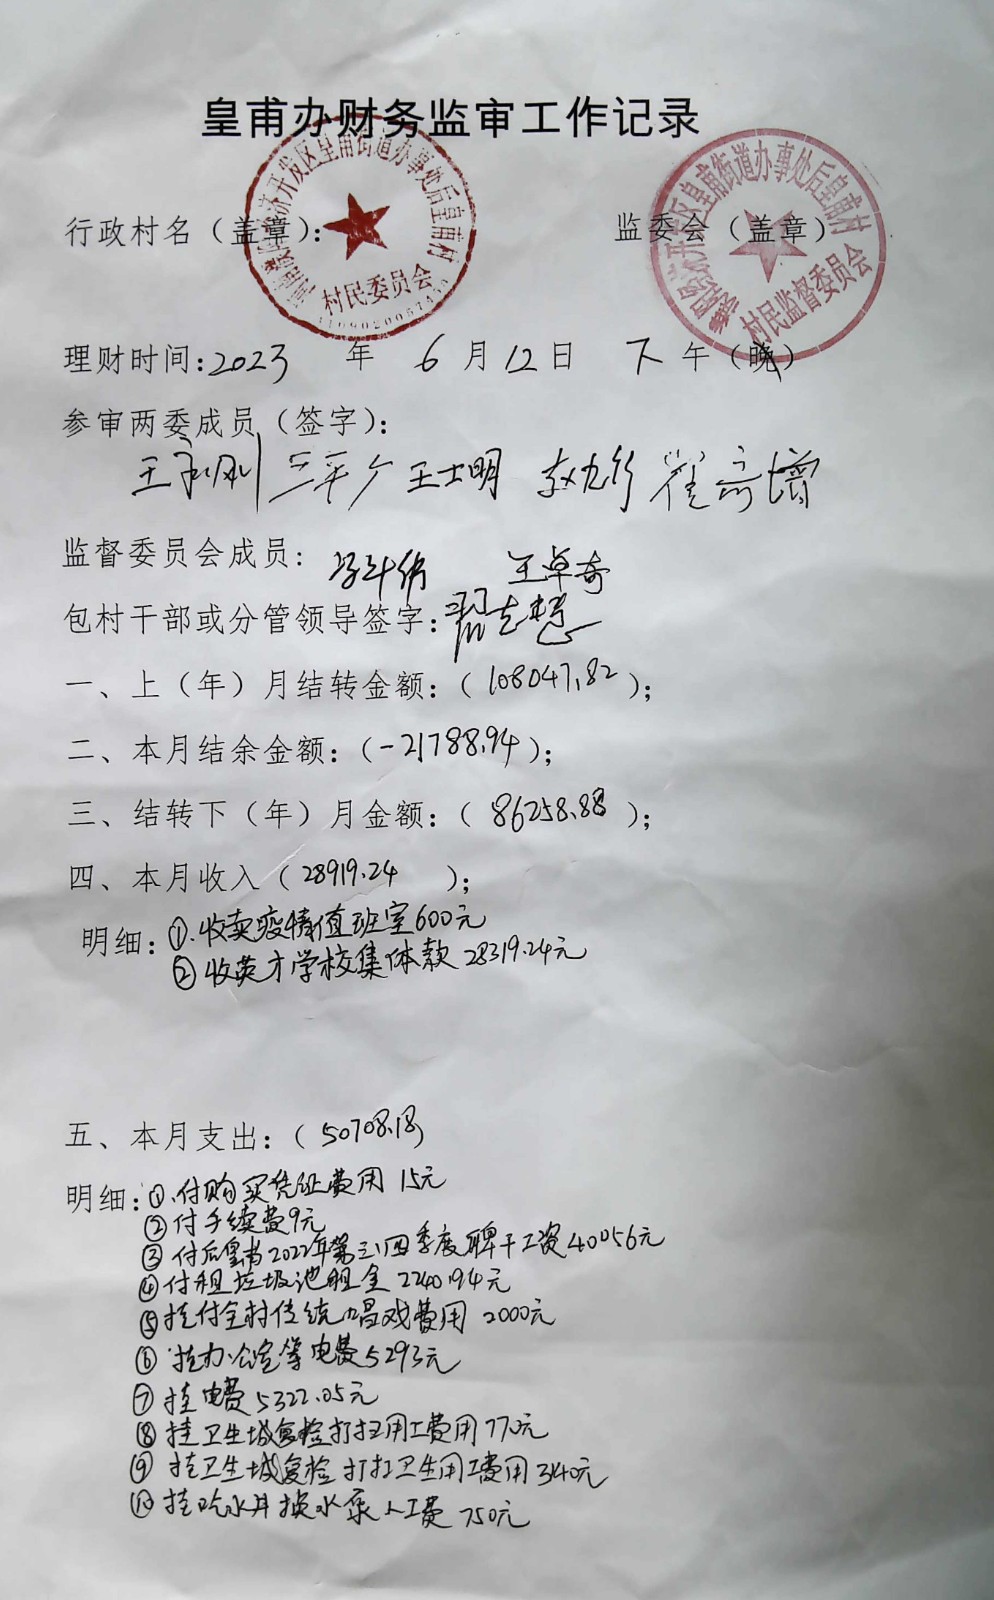 皇甫办财务监审工作记录
行政村名（盖章）： 监委会（盖章）
开发区皇甫街道办事处后皇甫村
村民委员会
开发区皇甫街道办事处后皇甫村
村民监督委员会
理财时间：2023 年 6 月 12 日 下 午（晚）
参审两委成员（签字）：
王士明
监督委员会成员： 王卓奇
包村干部或分管领导签字：翟志慧
一、上（年）月结转金额：（108047.82）；
二、本月结余金额：（-21788.94）；
三、结转下（年）月金额：（86258.88）；
四、本月收入（28919.24 ）；
明细：①.收卖疫情值班室600元
②收英才学校集体款28319.24元
五、本月支出：（50708.18）
明细：①.付购买凭证费用 15元
②付手续费9元
③付后皇甫2022年第三、四季度职干工资40056元
④付租垃圾池租金 2240.94元
⑤挂付全村传统唱戏费用 2000元
⑥挂办公室等电费5293元
⑦挂电费5322.05元
⑧挂卫生城复检打扫用工费用770元
⑨挂卫生城复检打扫卫生用工费用3140元
⑩挂吃水井换水泵人工费 750元